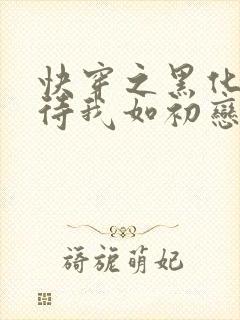 快穿之黑化
待我如初戀
旖旎萌妃